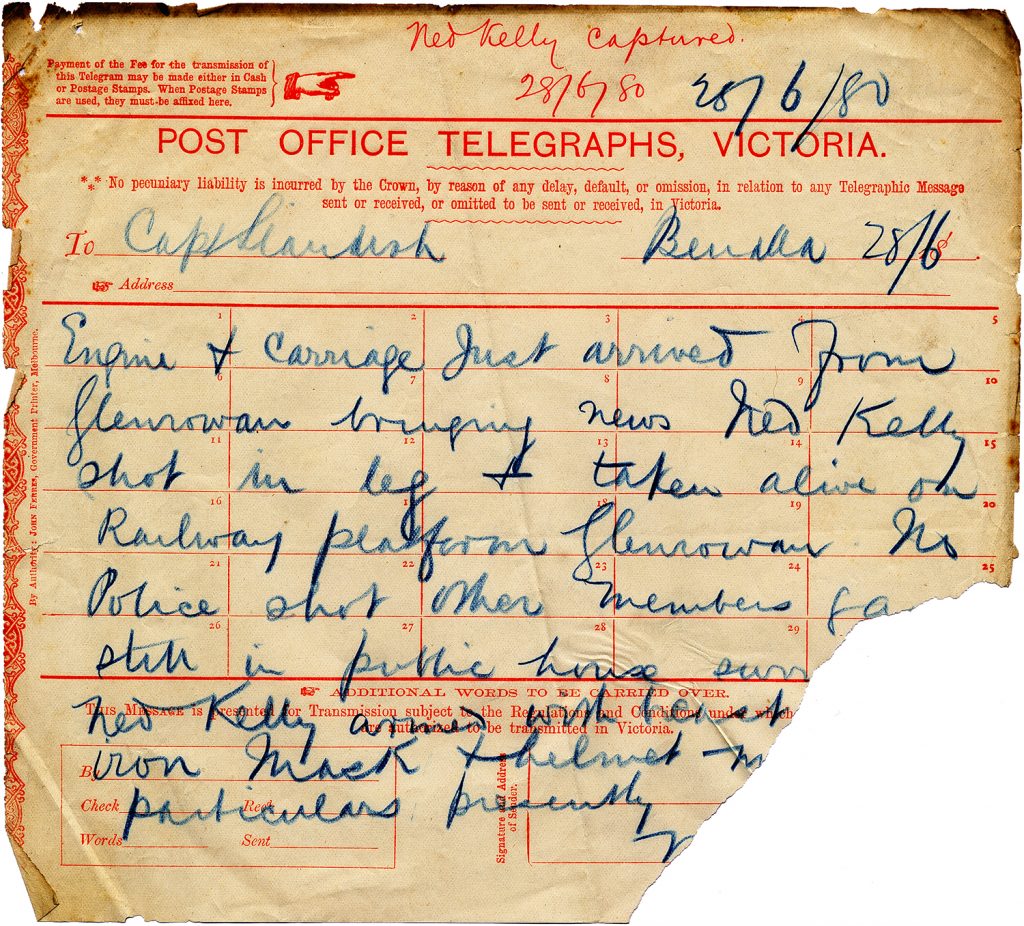 Ned Kelly captured.
28/6/80 28/6/80
Payment of the Fee for the transmission of
this Telegram may be made either in Cash
or Postage Stamps. When Postage Stamps
are used, they must be affixed here.
POST OFFICE TELEGRAPHS, VICTORIA.
*** No pecuniary liability is incurred by the Crown, by reason of any delay, default, or omission, in relation to any Telegraphic Message
sent or received, or omitted to be sent or received, in Victoria.
To Capt Standish Benalla 28/6 18
Address
1 2 3 4 5
Engine & Carriage Just arrived From
6 7 8 9 10
Glenrowan bringing news Ned Kelly
11 12 13 14 15
shot in leg & taken alive on
16 17 18 19 20
Railway platform Glenrowan. No
21 22 23 24 25
Police shot other members ga
26 27 28 29
still in public house surr
ADDITIONAL WORDS TO BE CARRIED OVER.
This Message is presented for Transmission subject to the Regulations and Conditions under which
are authorized to be transmitted in Victoria.
Ned Kelly armed with
iron Mask & helmet
particulars presently
By
Check Recd
Words Sent
Signature and Address
of Sender.
By Authority: John Ferres, Government Printer, Melbourne.